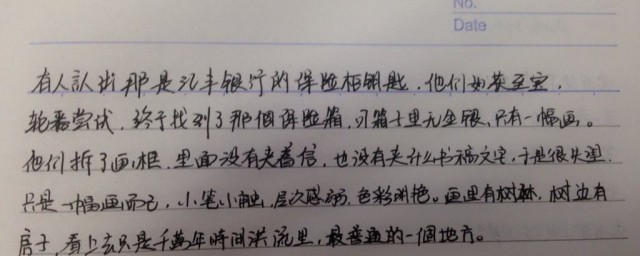 No.
Date
有人認出那是汇丰银行的保险柜钥匙，他们如获至宝，
轮番尝试，终于找到了那個保险箱，可箱子里无金银，只有一幅画。
他们拆了画框，里面没有夹着信，也没有夹什么书稿文字，于是很失望。
只是一幅画而已，小笔小触，层次感弱，色彩明艳。画里有树林，树边有
房子，看上去只是千萬年時間洪流里，最普通的一個地方。